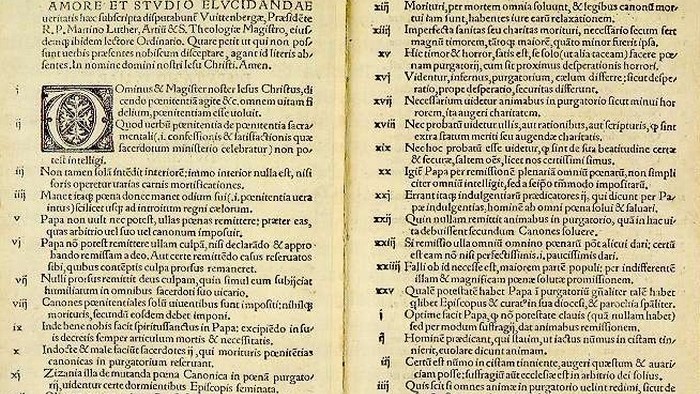 AMORE ET STVDIO ELVCIDANDAE
ueritatis hæc subscripta disputabunt̃ Vuittenbergæ, Præsidẽte
R. P. Martino Luther, Artiũ & S. Theologiæ Magistro, eius-
demq̃ ibidem lectore Ordinario. Quare petit ut qui non pos-
sunt uerbis præsentes nobiscum disceptare, agant id literis ab-
sentes. In nomine domini nostri Iesu Christi. Amen.
i OMINVS & Magister noster Iesus Christus, di
cendo pœnitentiã agite &c. omnem uitam fi
delium, pœnitentiam esse uoluit.
ij Quod uerbũ pœnitentia de pœnitentia sacra-
mentali (.i. confessionis & satisfactionis quæ
sacerdotum ministerio celebratur) non po-
test intelligi.
iij Non tamen solã intẽdit interiorẽ: immo interior nulla est, nisi
foris operetur uarias carnis mortificationes.
iiij Manet itaq̃ pœna donec manet odium sui (.i. pœnitentia uera
intus) scilicet usq̃ ad introitum regni cælorum.
v Papa non uult nec potest, ullas pœnas remittere: præter eas,
quas arbitrio uel suo uel canonum imposuit.
vj Papa nõ potest remittere ullam culpã, nisi declarãdo & appro
bando remissam a deo. Aut certe remittẽdo casus reseruatos
sibi, quibus contẽptis culpa prorsus remaneret.
vij Nulli prorsus remittit deus culpam, quin simul eum subijciat
humiliatum in omnibus sacerdoti suo uicario.
viij Canones pœnitentiales solũ uiuentibus sunt impositi: nihilq̃
morituris, secundũ eosdem debet imponi.
ix Inde bene nobis facit spiritussanctus in Papa: excipiẽdo in su-
is decretis semper articulum mortis & necessitatis.
x Indocte & male faciũt sacerdotes ij, qui morituris pœnitẽtias
canonicas in purgatorium reseruant.
xj Zizania illa de mutanda pœna Canonica in pœnã purgato-
rij, uidentur certe dormientibus Episcopis seminata.
xiij Morituri, per mortem omnia soluunt, & legibus canonũ mor-
tui iam sunt, habentes iure earũ relaxationem.
xiiij Imperfecta sanitas seu charitas morituri, necessario secum fert
magnũ timorem, tãtoq̃ maiorẽ, quãto minor fuerit ipsa.
xv Hic timor & horror, satis est, se solo (ut alia taceam) facere pœ-
nam purgatorij, cum sit proximus desperationis horrori.
xvj Videntur, infernus, purgatorium, cælum differre: sicut despe-
ratio, prope desperatio, securitas differunt.
xvij Necessarium uidetur animabus in purgatorio sicut minui hor
rorem, ita augeri charitatem.
xviij Nec probatũ uidetur ullis, aut rationibus, aut scripturis, q̃ sint
extra statum meriti seu augendæ charitatis.
xix Nec hoc probatũ esse uidetur, q̃ sint de sua beatitudine certæ
& securæ, saltem oẽs, licet nos certissimi simus.
xx Igit̃ Papa per remissionẽ plenariã omniũ pœnarũ, non simpli
citer omniũ intelligit, sed a seipõ tm̃modo impositarũ.
xxj Errant itaq̃ indulgentiarũ prædicatores ij, qui dicunt per Pa-
pæ indulgentias, hominẽ ab omni pœna solui & saluari.
xxij Quin nullam remittit animabus in purgatorio, quã in hac ui-
ta debuissent secundum Canones soluere.
xxiij Si remissio ulla omniũ omnino pœnarũ põt alicui dari; certũ
est eam nõ nisi perfectissimis .i. paucissimis dari.
xxiiij Falli ob id necesse est, maiorem partẽ populi; per indifferentẽ
illam & magnificam pœnæ solutæ promissionem.
xxv Qualẽ potestatẽ habet Papa ĩ purgatoriũ g̃naliter talẽ habet
q̃libet Episcopus & curat9 in sua diœcesi, & parochia sp̃aliter.
i Optime facit Papa, q̃ nõ potestate clauis (quã nullam habet)
sed per modum suffragij, dat animabus remissionem.
ij Hominẽ prædicant, qui statim, ut iactus nũmus in cistam tin-
nierit, euolare dicunt animam.
iij Certũ est nũmo in cistam tinniente, augeri quæstum & auari-
ciam posse: suffragiũ aũt ecclesiæ est in arbitrio dei solius.
iiij Quis scit si omnes animæ in purgatorio uelint redimi, sicut de